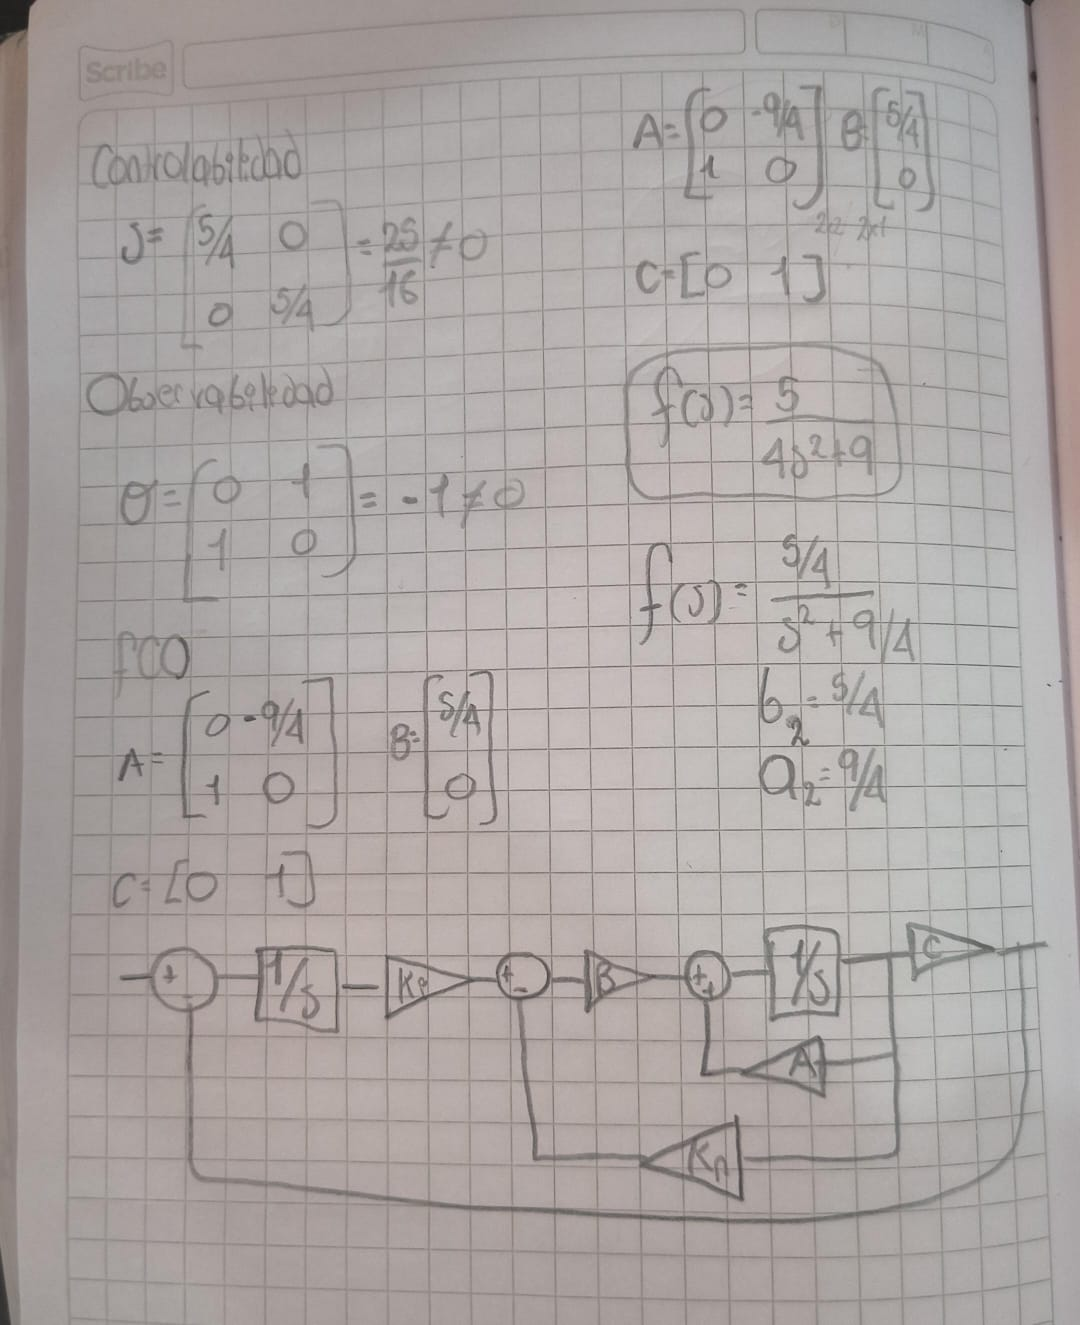 Scribe
Controlabilidad
S = [5/4 0
0 5/4] = 25/16 ≠ 0
Observabilidad
σ = [0 1
1 0] = -1 ≠ 0
FCO
A = [0 -9/4
1 0] B = [5/4
0]
C = [0 1]
A = [0 -9/4
1 0] B [5/4
0]
2x2 2x1
C = [0 1]
f(s) = 5 / 4s² + 9
f(s) = 5/4 / s² + 9/4
b₂ = 5/4
a₂ = 9/4
+ - 1/s + - B + + 1/s C
A